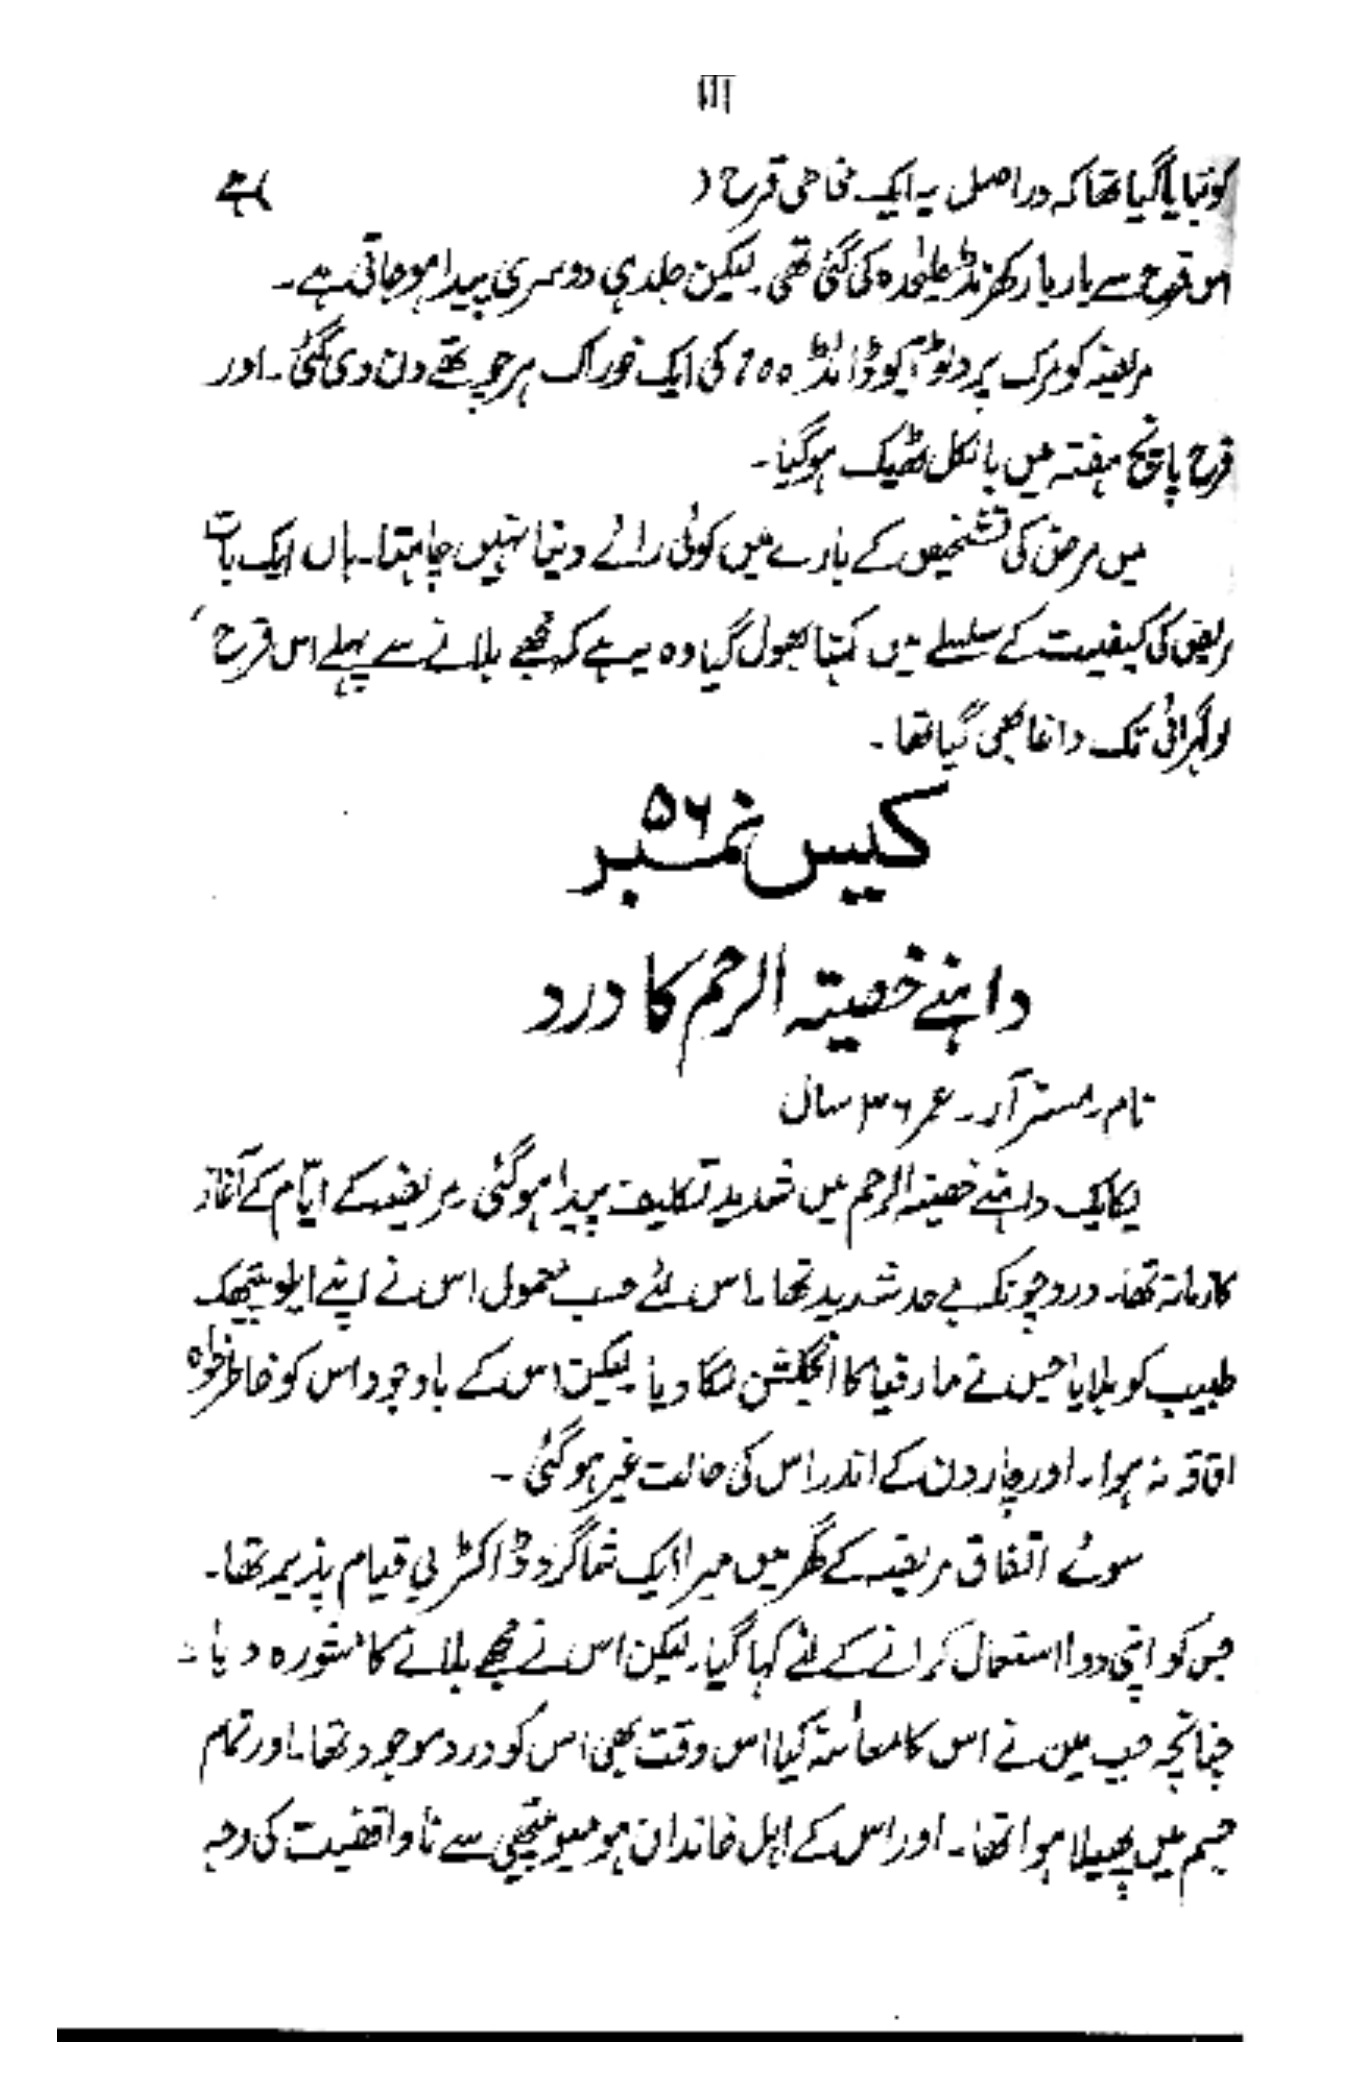 ۱۱۱
کو بتایا گیا تھا کہ دراصل یہ ایک قرح ( ) ہے
اس قرح سے بار بار کھرنڈ علیٰحدہ کی گئی تھی۔ لیکن جلد ہی دوسری پیدا ہو جاتی ہے۔
مریضہ کو مرک پروٹو آیوڈائڈ 200 کی ایک خوراک ہر چوتھے دن دی گئی۔ اور
قرح پانچ ہفتہ میں بالکل ٹھیک ہو گیا۔
میں مرض کی تشخیص کے بارے میں کوئی رائے دینا نہیں چاہتا۔ ہاں ایک بات
مریض کی کیفیت کے سلسلے میں کہنا بھول گیا وہ یہ ہے کہ مجھے بلانے سے پہلے اس قرح
کو گہرائی تک داغا بھی گیا تھا۔
کیس نمبر ۵۶
داہنے خصیتہ الرحم کا درد
نام۔ مسز آر۔ عمر ۳۶ سال
یکایک داہنے خصیتہ الرحم میں شدید تکلیف پیدا ہو گئی۔ مریضہ کے ایّام کے آغاز
کا زمانہ تھا۔ درد چونکہ بے حد شدید تھا۔ اس لئے حسب معمول اس نے اپنے ایلوپیتھک
طبیب کو بلایا جس نے مارفیا کا انجکشن لگا دیا۔ لیکن اس کے باوجود اس کو خاطر خواہ
افاقہ نہ ہوا۔ اور چار دن کے اندر اس کی حالت غیر ہو گئی۔
سوئے اتفاق مریضہ کے گھر میں میرا ایک شاگرد ڈاکٹر بی قیام پذیر تھا۔
جس کو اپنی دوا استعمال کرانے کے لئے کہا گیا۔ لیکن اس نے مجھے بلانے کا مشورہ دیا۔
چنانچہ جب میں نے اس کا معائنہ کیا اس وقت بھی اس کو درد موجود تھا۔ اور تمام
جسم میں پھیلا ہوا تھا۔ اور اس کے اہل خاندان ہومیوپیتھی سے ناواقفیت کی وجہ